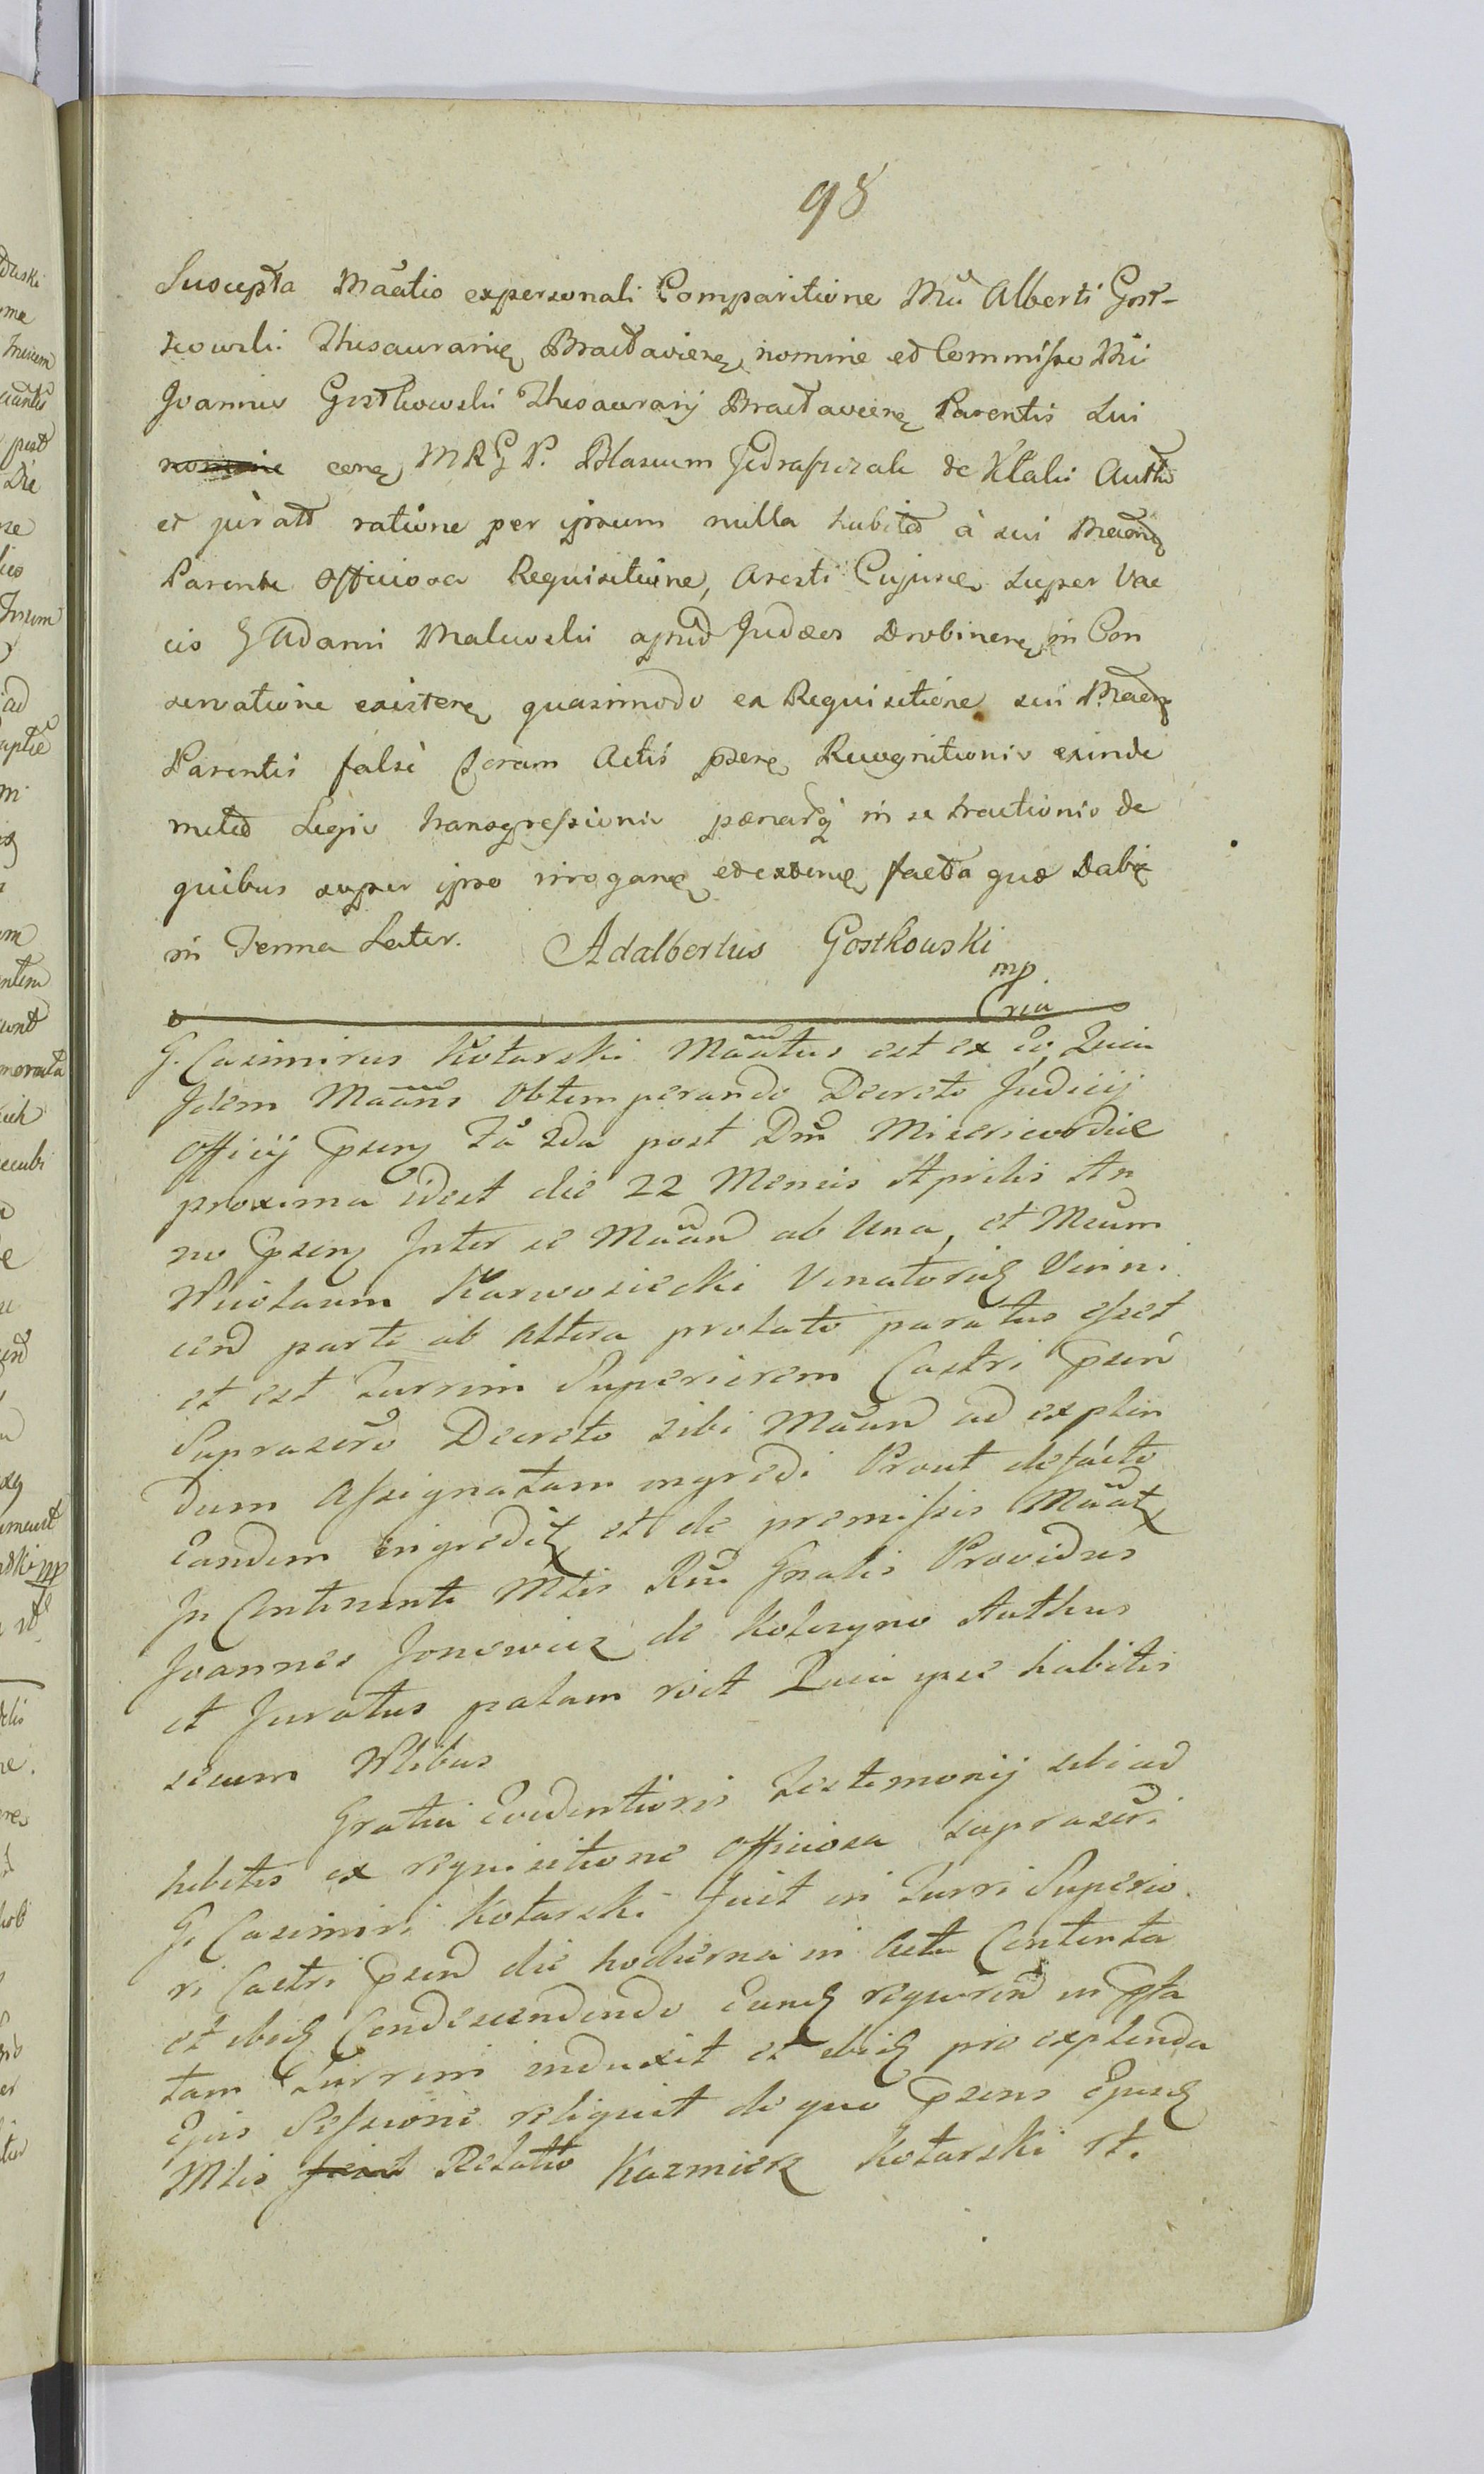 98
Suscepta Mãtio expersonali Comparitione Mči Alberti Gost-
kowski Thesaurarię Bracłavienę nomine et Commisso Mči
Joannis Gostkowski Thesaurarij Bracłavienę Parentis Sui
nomine conę MRG P. Blasium Jędraszczak de Ktalii Auth
et jurat ratione per ipsum nulla habita à sui Maeñę
Parente Officiosa Requisitione, Aresti Cujusę super Vac
cis G Adami Malewski apud Judæos Drobinenę in Con
servatione existenę quasimodo ex Requisitione sui Maeñę
Parentis falsè Coram Actis psenę Recognitionis exinde
meted Legis transgressionis pœnarq in se tractionis de
quibus super ipso irroganę et extenę facta quæ Dabię
in Termã Later. Adalbertus Gostkowski
mp
Cria
G. Casimirus Kotarski Mãatus est ex eo, Quia
Idem Mããns Obtemperando Decreto Judicij
Officij psenę Fã 2da post Dñi Misericordiæ
proxima idest die 22 Mensis Aprilis An
no psenę Inter se Mãand ab Una, et Mcum
Nicolaum Karwosiecki Venatorię Vinni
cend parte ab Altera prolato paratus esset
et est Turrim Superiorem Castri psen
Suprascro Decreto sibi Mãand ad explen
dum Assignatam ingredi Prout defacto
Eandem ingredit et de premissis Mãatę
In Continenti Mtlis Rni Gnalis Providus
Joannes Jonowicz de Kolczyno Authus
et Juratus palam rcit Quia ipse habitis
secum Nbibus
Gratia Evidentioris Testimonij sibi ad
hibitis ex requisitione officiosa suprascri
G. Casimiri Kotarski fuit in Turri Superio
ri Castri psend die hodierna in Actu Contenta
et ibidę Condescendendo Eundę requirend in psta
tam Turrim induxit et ibidę pro explenda
Ejus Sessione reliquit de quo psens Ejusdę
Mtlis fecit Relatio Kazmierz Kotarski rt.